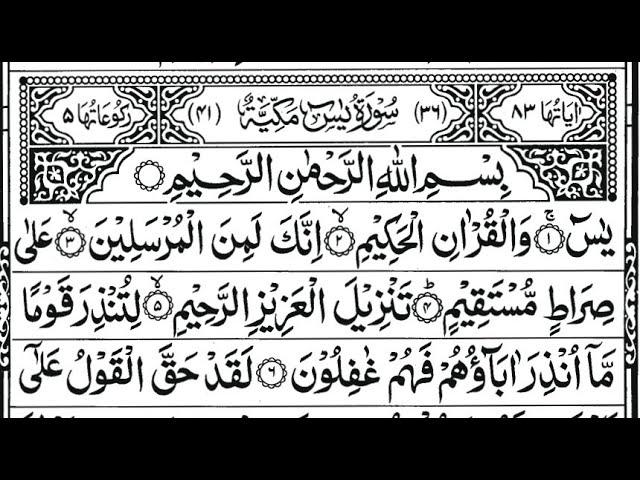 اٰیَاتُهَا ٨٣ (٣٦) سُوْرَةُ یٰسٓ مَکِّیَّةٌ (٤١) رُکُوْعَاتُهَا ٥
بِسْمِ اللّٰهِ الرَّحْمٰنِ الرَّحِیْمِ
یٰسٓ ۚ﴿١﴾ وَالْقُرْاٰنِ الْحَکِیْمِ ۙ﴿٢﴾ اِنَّكَ لَمِنَ الْمُرْسَلِیْنَ ۙ﴿٣﴾ عَلٰی
صِرَاطٍ مُّسْتَقِیْمٍ ؕ﴿٤﴾ تَنْزِیْلَ الْعَزِیْزِ الرَّحِیْمِ ۙ﴿٥﴾ لِتُنْذِرَ قَوْمًا
مَّاۤ اُنْذِرَ اٰبَآؤُهُمْ فَهُمْ غٰفِلُوْنَ ﴿٦﴾ لَقَدْ حَقَّ الْقَوْلُ عَلٰۤی